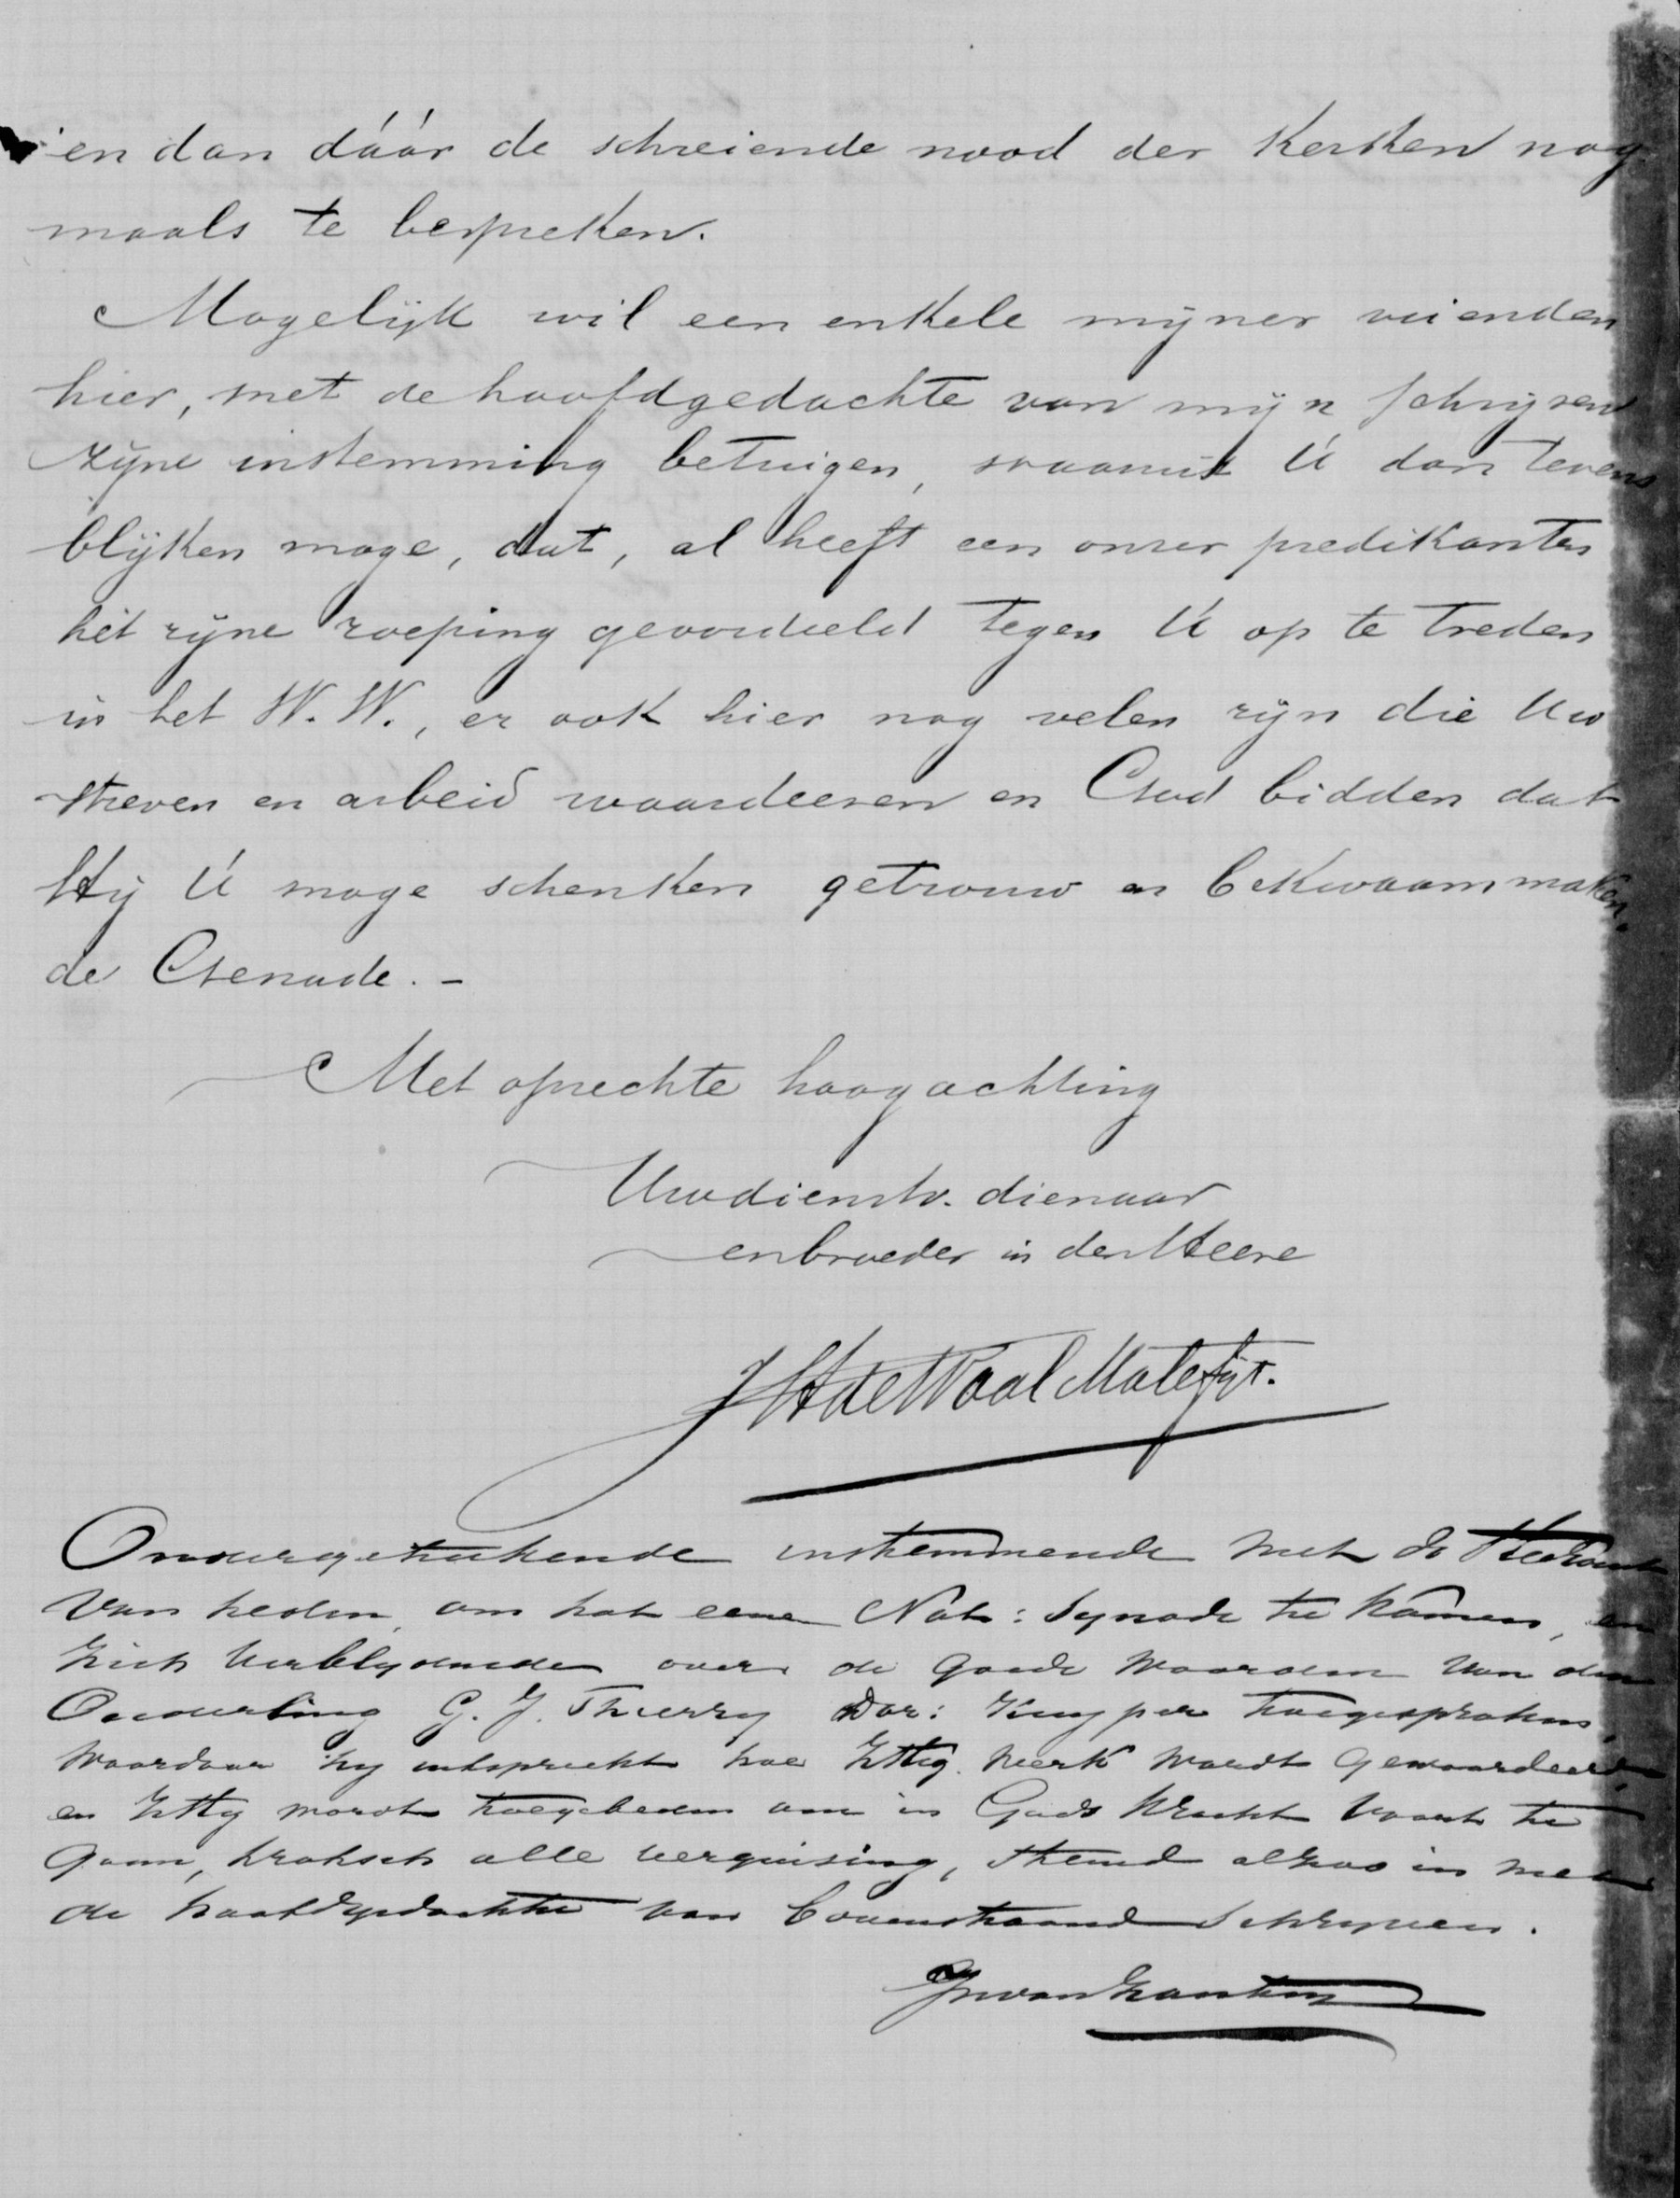 en dan dáár de schreiende nood der Kerken nog
maals te bespreken.
Mogelijk wil een enkele mijner vrienden
hier, met de hoofdgedachte van mijn schrijven
zijne instemming betuigen, waaruit U dan tevens
blijken moge, dat, al heeft een onzer predikanten
het zijne roeping geoordeeld tegen U op te treden
in het W. W., er ook hier nog velen zijn die Uw
streven en arbeid waardeeren en God bidden dat
Hij U moge schenken getrouw en bekwaam maken,
de Genade. -
Met oprechte hoogachting
Uw dienstv. dienaar
en broeder in den Heere
JH de Waal Malefijt.
Ondergeteekende instemmende met de
van heden, om tot eene Nat: Synode te komen, en
zich verblydende over de goede woorden van den
Ouderling G. J. Thierry Dor: Kuyper toegesproken,
waardoor hy uitspreekt hoe ZHEg. werk wordt gewaardeerd,
en ZHEg wordt toegebeden om in Gods kracht voort te
gaan, trotsch alle verguising, stemd alzoo in met
de hoofdgedachte van bovenstaand schryven.
van Zanten